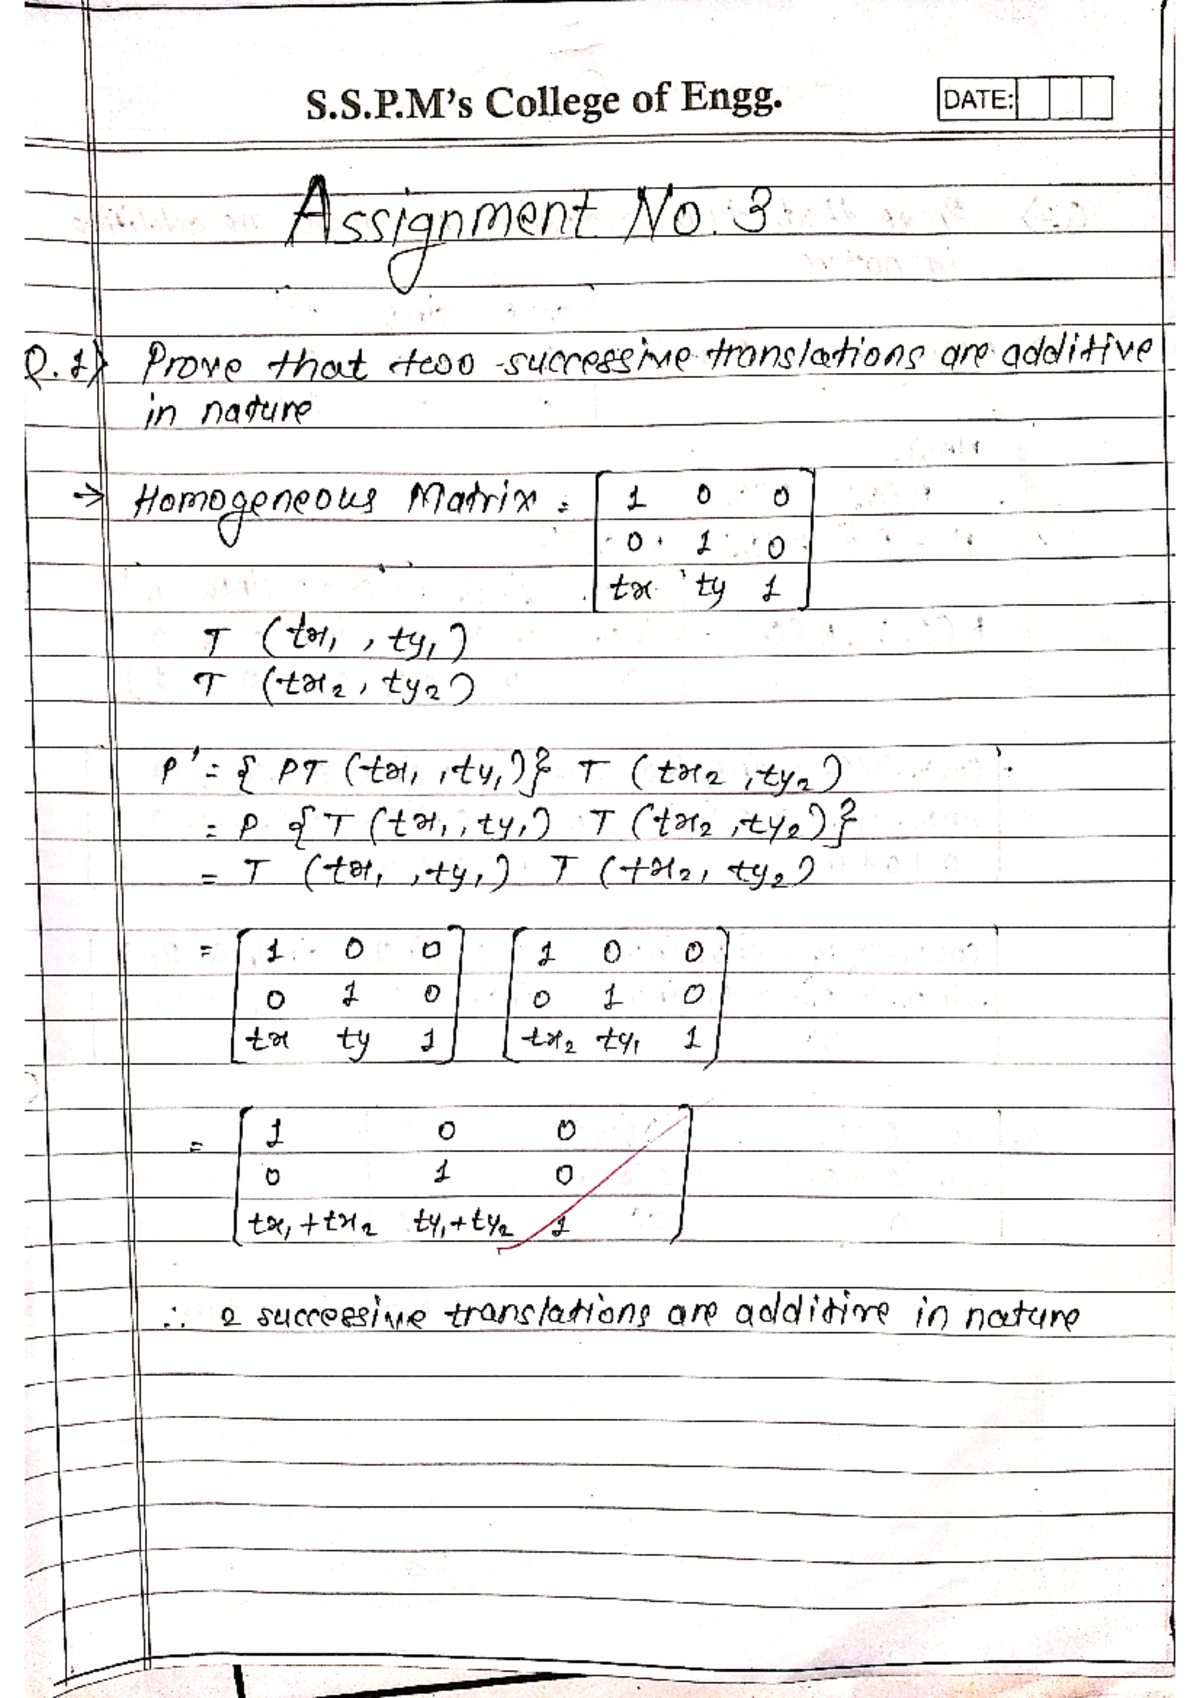 S.S.P.M's College of Engg.
DATE:
Assignment No. 3
Q.1) Prove that two successive translations are additive
in nature
→ Homogeneous Matrix = [ 1 0 0
0 1 0
tx ty 1 ]
T (tx₁, ty₁)
T (tx₂, ty₂)
P' = { PT (tx₁, ty₁)} T (tx₂, ty₂)
= P {T (tx₁, ty₁) T (tx₂, ty₂)}
= T (tx₁, ty₁) T (tx₂, ty₂)
= [ 1 0 0 ] [ 1 0 0 ]
0 1 0 0 1 0
tx ty 1 tx₂ ty₁ 1
= [ 1 0 0 ]
0 1 0
tx₁+tx₂ ty₁+ty₂ 1
∴ 2 successive translations are additive in nature